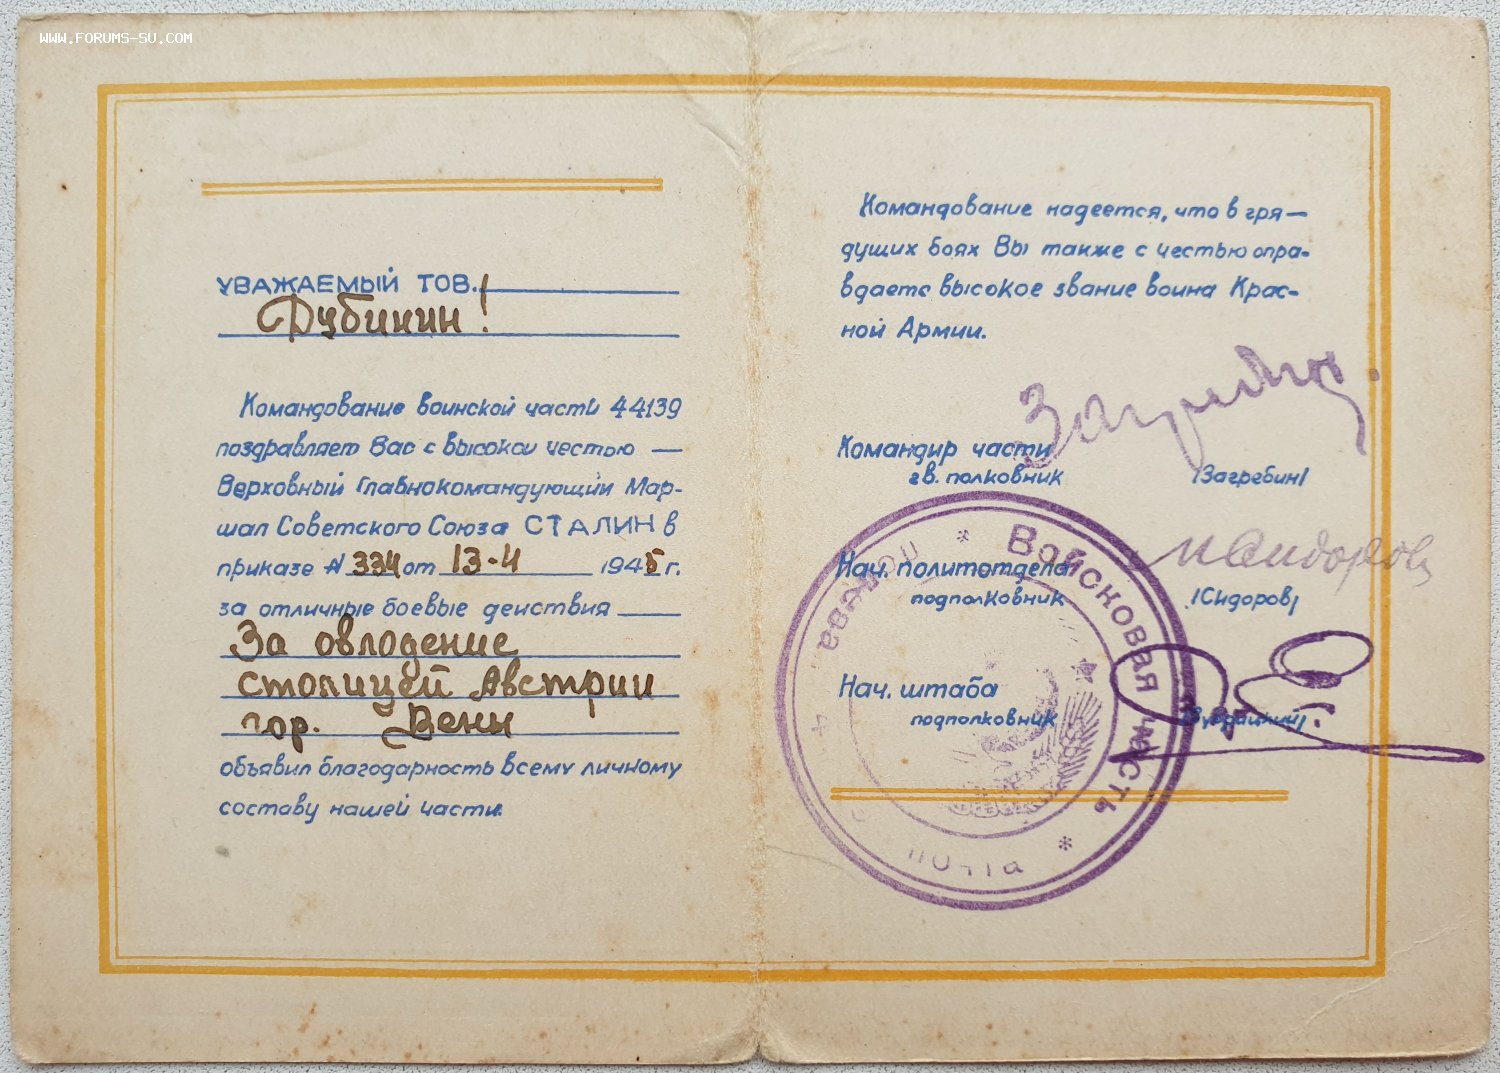 WWW.FORUMS-SU.COM
УВАЖАЕМЫЙ ТОВ.
Дубинин!
Командование воинской части 44139
поздравляет Вас с высокой честью —
Верховный Главнокомандующий Мар-
шал Советского Союза СТАЛИН в
приказе № 334 от 13-4 1945 г.
за отличные боевые действия
За овлодение
столицей Австрии
гор. Вены
объявил благодарность всему личному
составу нашей части.
Командование надеется, что в гря—
дущих боях Вы также с честью опра-
вдаете высокое звание воина Крас-
ной Армии.
Командир части
гв. полковник /Загребин/
Нач. политотдела
подполковник /Сидоров/
И Сидоров
Нач. штаба
подполковник
Войсковая часть
почта
полевая